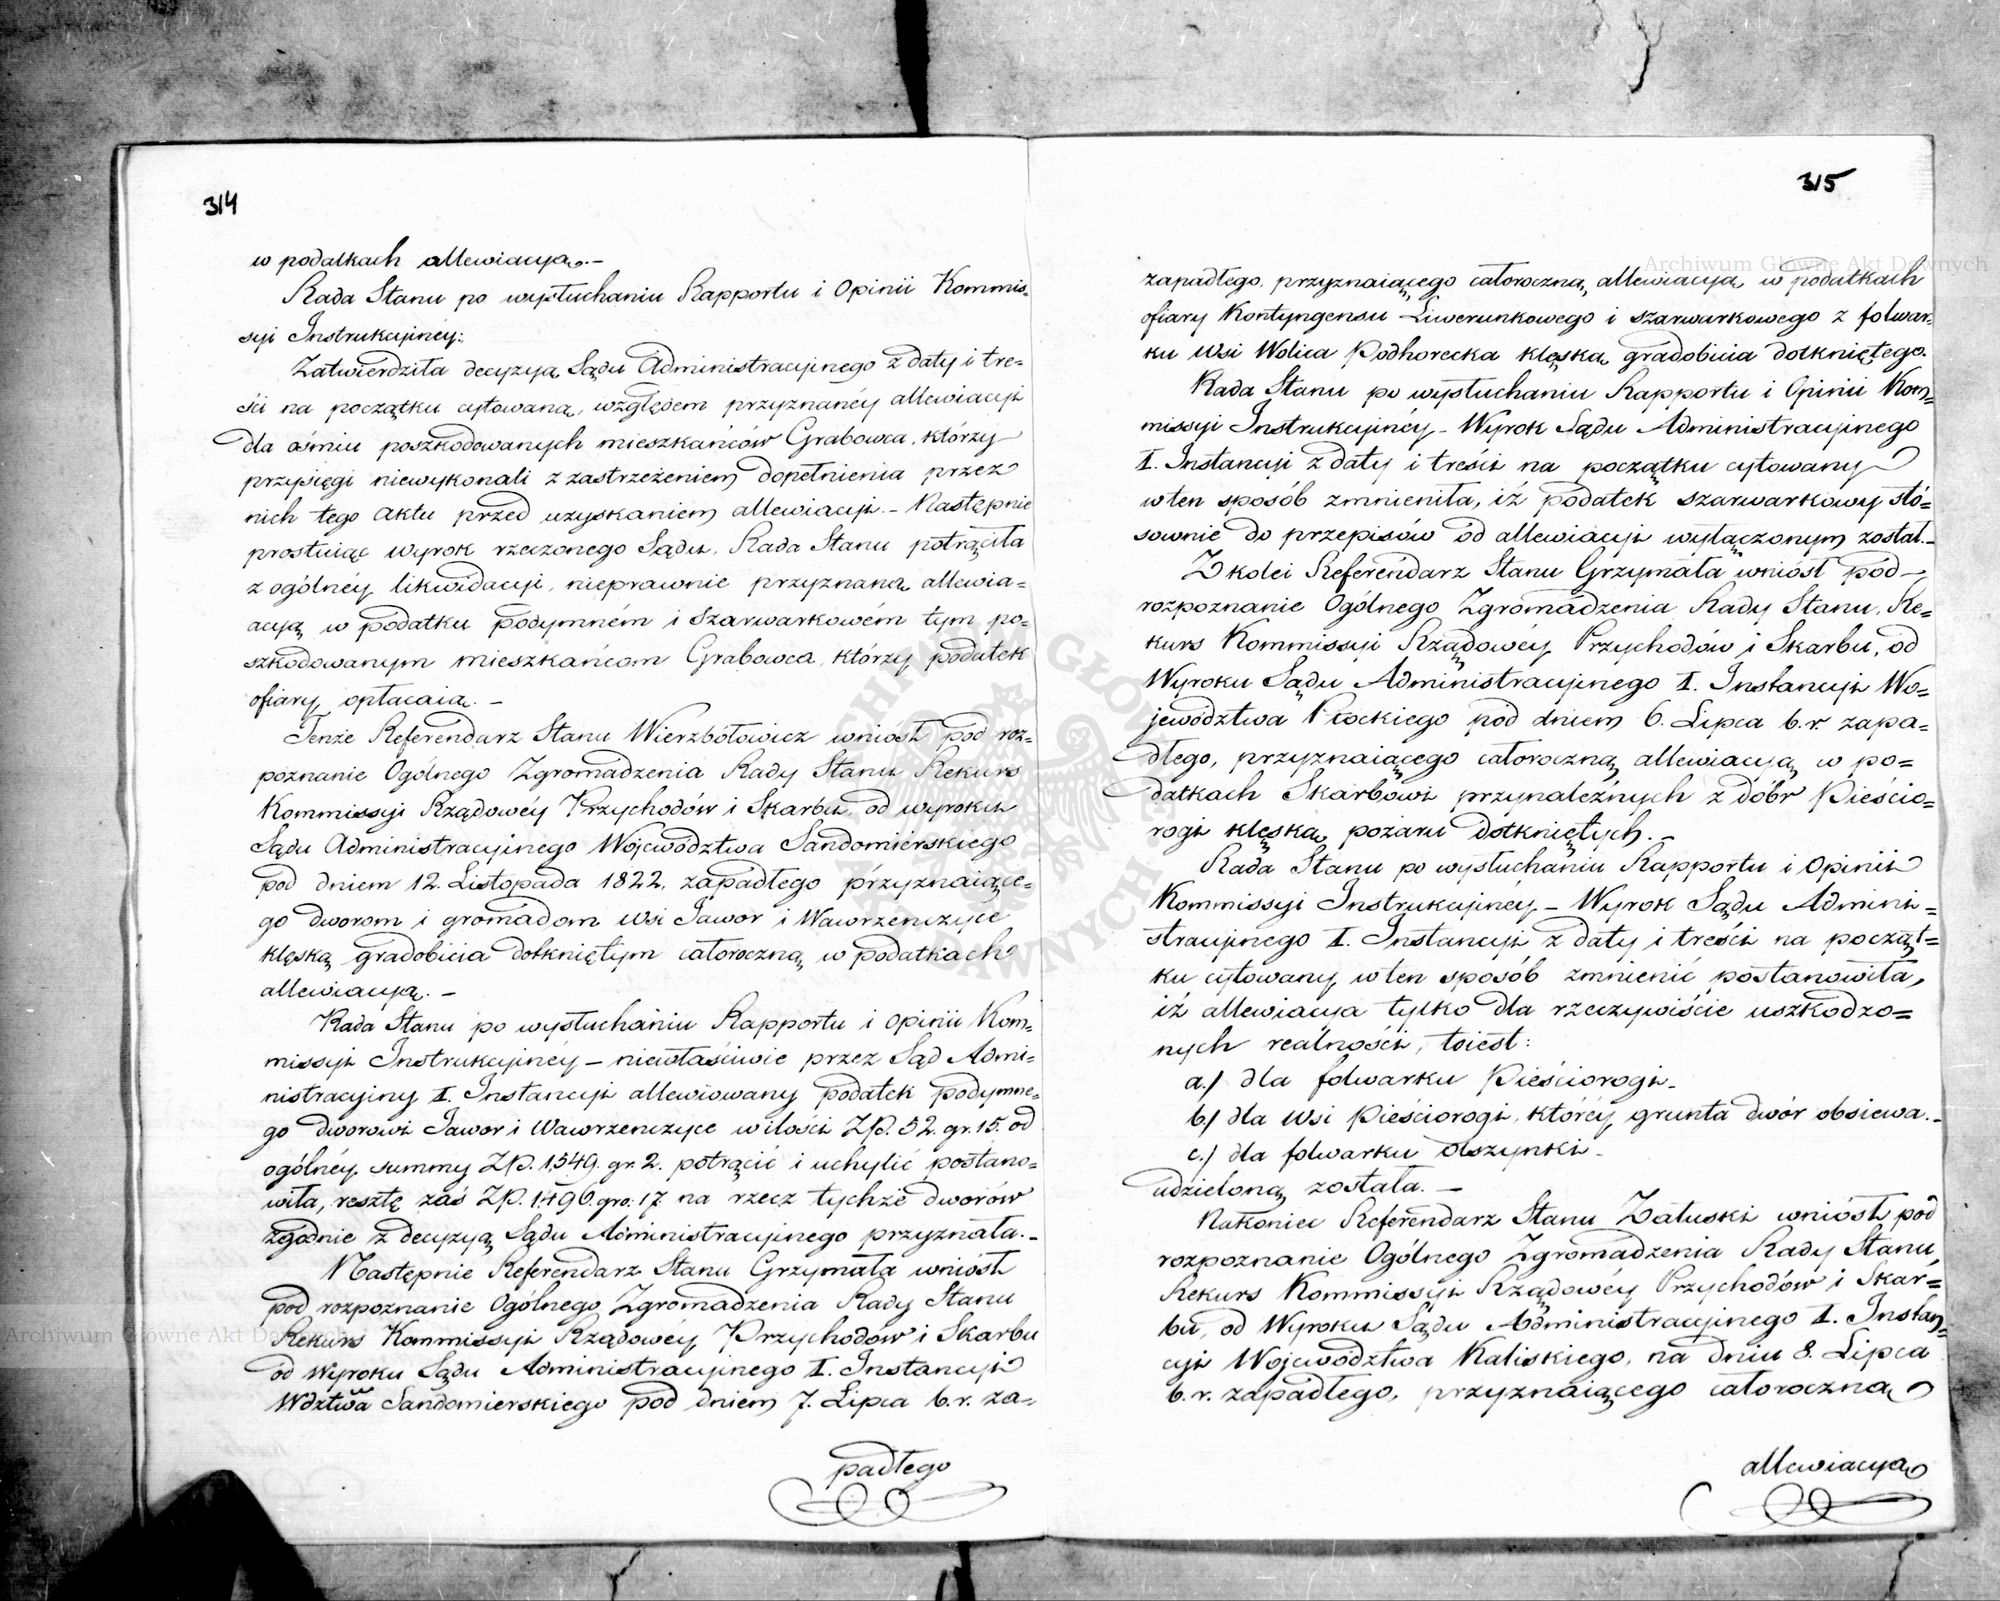 314
w podatkach allewiacyą.–
Rada Stanu po wysłuchaniu Rapportu i Opinii Kommis=
syi Instrukcyinéy:
Zatwierdziła decyzyą Sądu Administracyinego z daty i tre=
ści na początku cytowaną, względem przyznanéy allewiacyi
dla ośmiu poszkodowanych mieszkańców Grabowca, którzy
przysięgi niewykonali z zastrzeżeniem dopełnienia przez
nich tego aktu przed uzyskaniem allewiacyi.– Następnie
prostuiąc wyrok rzeczonego Sądu, Rada Stanu potrąciła
z ogólnéy likwidacyi, nieprawnie przyznaną allewia=
acyą w podatku podymném i szarwarkowém tym po=
szkodowanym mieszkańcom Grabowca, którzy podatek
ofiary opłacaią. –
Tenże Referendarz Stanu Wierzbółowicz wniósł pod roz=
poznanie Ogólnego Zgromadzenia Rady Stanu Rekurs
Kommissyi Rządowéy Przychodów i Skarbu, od wyroku
Sądu Administracyinego Województwa Sandomierskiego
pod dniem 12. Listopada 1822, zapadłego przyznaiące=
go dworom i gromadom wsi Jawor i Wawrzenczyce
klęską gradobicia dotkniętym całoroczną w podatkach
allewiacyą. –
Rada Stanu po wysłuchaniu Rapportu i opinii Kom=
missyi Instrukcyinéy – niewłaściwie przez Sąd Admi=
nistracyiny I. Instancyi allewiowany podatek podymne=
go dworowi Jawor i Wawrzenczyce w ilości Zp. 52. gr. 15. od
ogólnéy summy Zp. 1,549. gr. 2. potrącić i uchylić postano=
wiła, resztę zaś Zp. 1,496. gro. 17 na rzecz tychże dworów
zgodnie z decyzyą Sądu Administracyinego przyznała.–
Następnie Referendarz Stanu Grzymała wniósł
pod rozpoznanie Ogólnego Zgromadzenia Rady Stanu
Rekurs Kommissyi Rządowéy Przychodów i Skarbu
od Wyroku Sądu Administracyinego I. Instancyi
Wdztwa Sandomierskiego pod dniem 7. Lipca b. r. za=
padłego
315
zapadłego, przyznaiącego całoroczną allewiacyą w podatkach
ofiary Kontyngensu Liwerunkowego i szarwarkowego z folwar=
ku wsi Wolica Podhorecka klęską gradobicia dotkniętego.
Rada Stanu po wysłuchaniu Rapportu i Opinii Kom=
missyi Instrukcyinéy – Wyrok Sądu Administracyinego
I. Instancyi z daty i treści na początku cytowany
w ten sposób zmieniła, iż podatek szarwarkowy stó=
sownie do przepisów od allewiacyi wyłączonym został.–
Z kolei Referendarz Stanu Grzymała wniósł pod
rozpoznanie Ogólnego Zgromadzenia Rady Stanu, Re=
kurs Kommissyi Rządowéy Przychodów i Skarbu, od
Wyroku Sądu Administracyinego I. Instancyi Wo=
jewództwa Płockiego pod dniem 6. Lipca b. r. zapa=
dłego, przyznaiącego całoroczną allewiacyą w po=
datkach Skarbowi przynależnych z dóbr Pieścio=
rogi klęską pożaru dotkniętych. –
Rada Stanu po wysłuchaniu Rapportu i Opinii
Kommissyi Instrukcyinéy – Wyrok Sądu Admini=
stracyinego I. Instancyi z daty i treści na począt=
ku cytowany w ten sposób zmienić postanowiła,
iż allewiacya tylko dla rzeczywiście uszkodzo=
nych realności, toiest:
a./ dla folwarku Pieściorogi.
b./ dla wsi Pieściorogi, któréy grunta dwór obsiewa.–
c./ dla folwarku Olszynki.
udzieloną została. –
Nakoniec Referendarz Stanu Załuski wniósł pod
rozpoznanie Ogólnego Zgromadzenia Rady Stanu,
Rekurs Kommissyi Rządowéy Przychodów i Skar=
bu, od Wyroku Sądu Administracyinego I. Instan=
cyi Województwa Kaliskiego, na dniu 8. Lipca
b. r. zapadłego, przyznaiącego całoroczną
allewiacyą
Archiwum Główne Akt Dawnych
Archiwum Główne Akt Dawnych